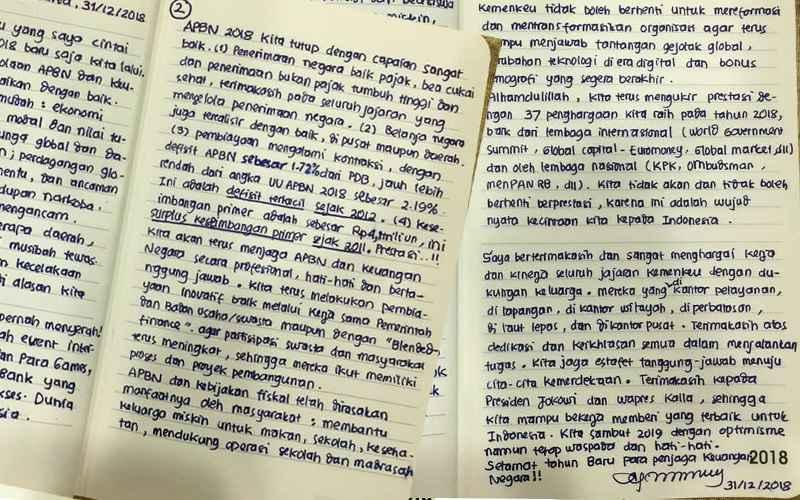 31/12/2018
yang saya cintai
baru saja kita lalui.
APBN dan
dengan baik.
: ekonomi
modal dan nilai tu-
global dan
; perdagangan glo-
, dan ancaman
narkoba.
mengancam.
daerah,
musibah tewas
kecelakaan
alasan kita
pernah menyerah!
event inter-
Para Games,
Bank yang
. Dunia
2
APBN 2018 kita tutup dengan capaian sangat
baik. (1) Penerimaan negara baik pajak, bea cukai
dan penerimaan bukan pajak tumbuh tinggi dan
sehat, terimakasih pada seluruh jajaran yang
mengelola penerimaan negara. (2) Belanja negara
juga terealisir dengan baik, di pusat maupun daerah.
(3) pembiayaan mengalami kontraksi, dengan
defisit APBN sebesar 1.72% dari PDB, jauh lebih
rendah dari angka UU APBN 2018 sebesar 2.19%.
Ini adalah defisit terkecil sejak 2012. (4) Kese-
imbangan primer adalah sebesar Rp4,1 triliun, ini
surplus keseimbangan primer sejak 2011. Prestasi..!!
Kita akan terus menjaga APBN dan keuangan
Negara secara profesional, hati-hati dan berta-
nggung jawab. Kita terus melakukan pembia-
yaan inovatif baik melalui kerja sama Pemerintah
dan Badan Usaha/swasta maupun dengan "Blended
finance", agar partisipasi swasta dan masyarakat
terus meningkat, sehingga mereka ikut memiliki
proses dan proyek pembangunan.
APBN dan kebijakan fiskal telah dirasakan
manfaatnya oleh masyarakat: membantu
keluarga miskin untuk makan, sekolah, keseha-
tan, mendukung operasi sekolah dan madrasah
Kemenkeu tidak boleh berhenti untuk mereformasi
dan mentransformasikan organisasi agar terus
mampu menjawab tantangan gejolak global,
perubahan teknologi di era digital dan bonus
demografi yang segera berakhir.
Alhamdulillah, kita terus mengukir prestasi de-
ngan 37 penghargaan kita raih pada tahun 2018,
baik dari lembaga internasional (World Government
Summit, Global Capital - Euromoney, Global market, dll)
dan oleh lembaga nasional (KPK, Ombudsman,
menPANRB, dll). Kita tidak akan dan tidak boleh
berhenti berprestasi, karena ini adalah wujud
nyata kecintaan kita kepada Indonesia.
Saya berterimakasih dan sangat menghargai kerja
dan kinerja seluruh jajaran kemenkeu dengan du-
kungan keluarga. Mereka yang di kantor pelayanan,
di lapangan, di kantor wilayah, di perbatasan,
di laut lepas, dan di kantor pusat. Terimakasih atas
dedikasi dan keikhlasan semua dalam menjalankan
tugas. Kita jaga estafet tanggung-jawab menuju
cita-cita kemerdekaan. Terimakasih kepada
Presiden Jokowi dan wapres Kalla, sehingga
kita mampu bekerja memberi yang terbaik untuk
Indonesia. Kita sambut 2019 dengan optimisme
namun tetap waspada dan hati-hati.
Selamat tahun Baru para penjaga keuangan
Negara!!
2018
31/12/2018